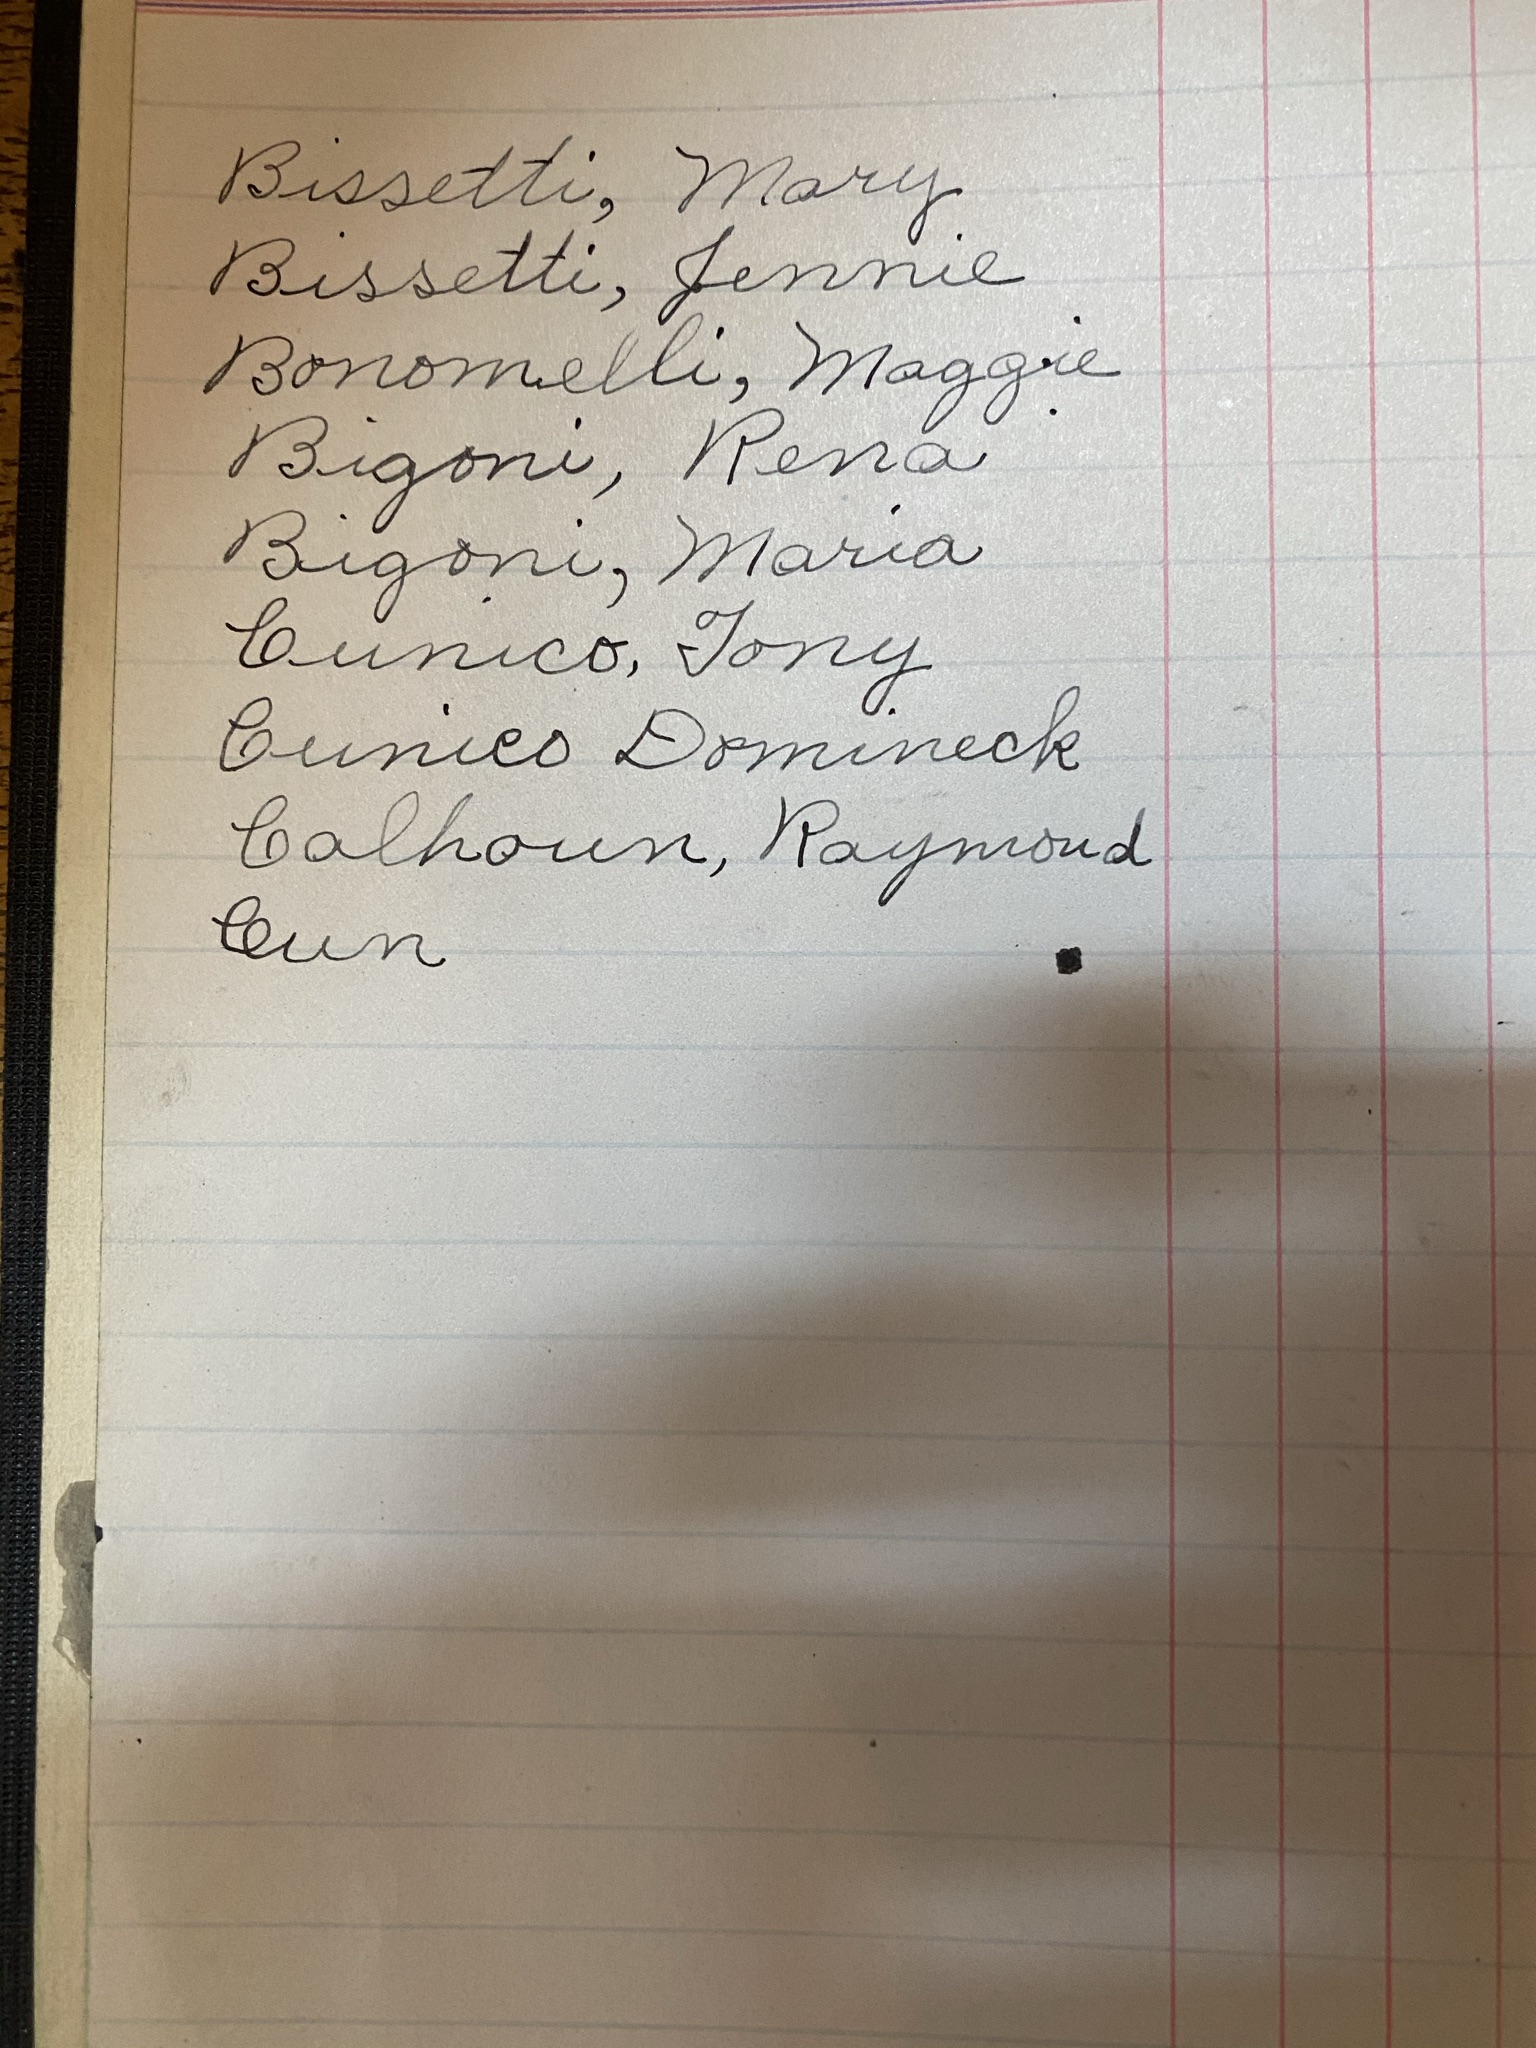 Bissetti, Mary
Bissetti, Jennie
Bonomelli, Maggie
Bigoni, Rena
Bigoni, Maria
Cunico, Tony
Cunico Domineck
Calhoun, Raymond
Cun